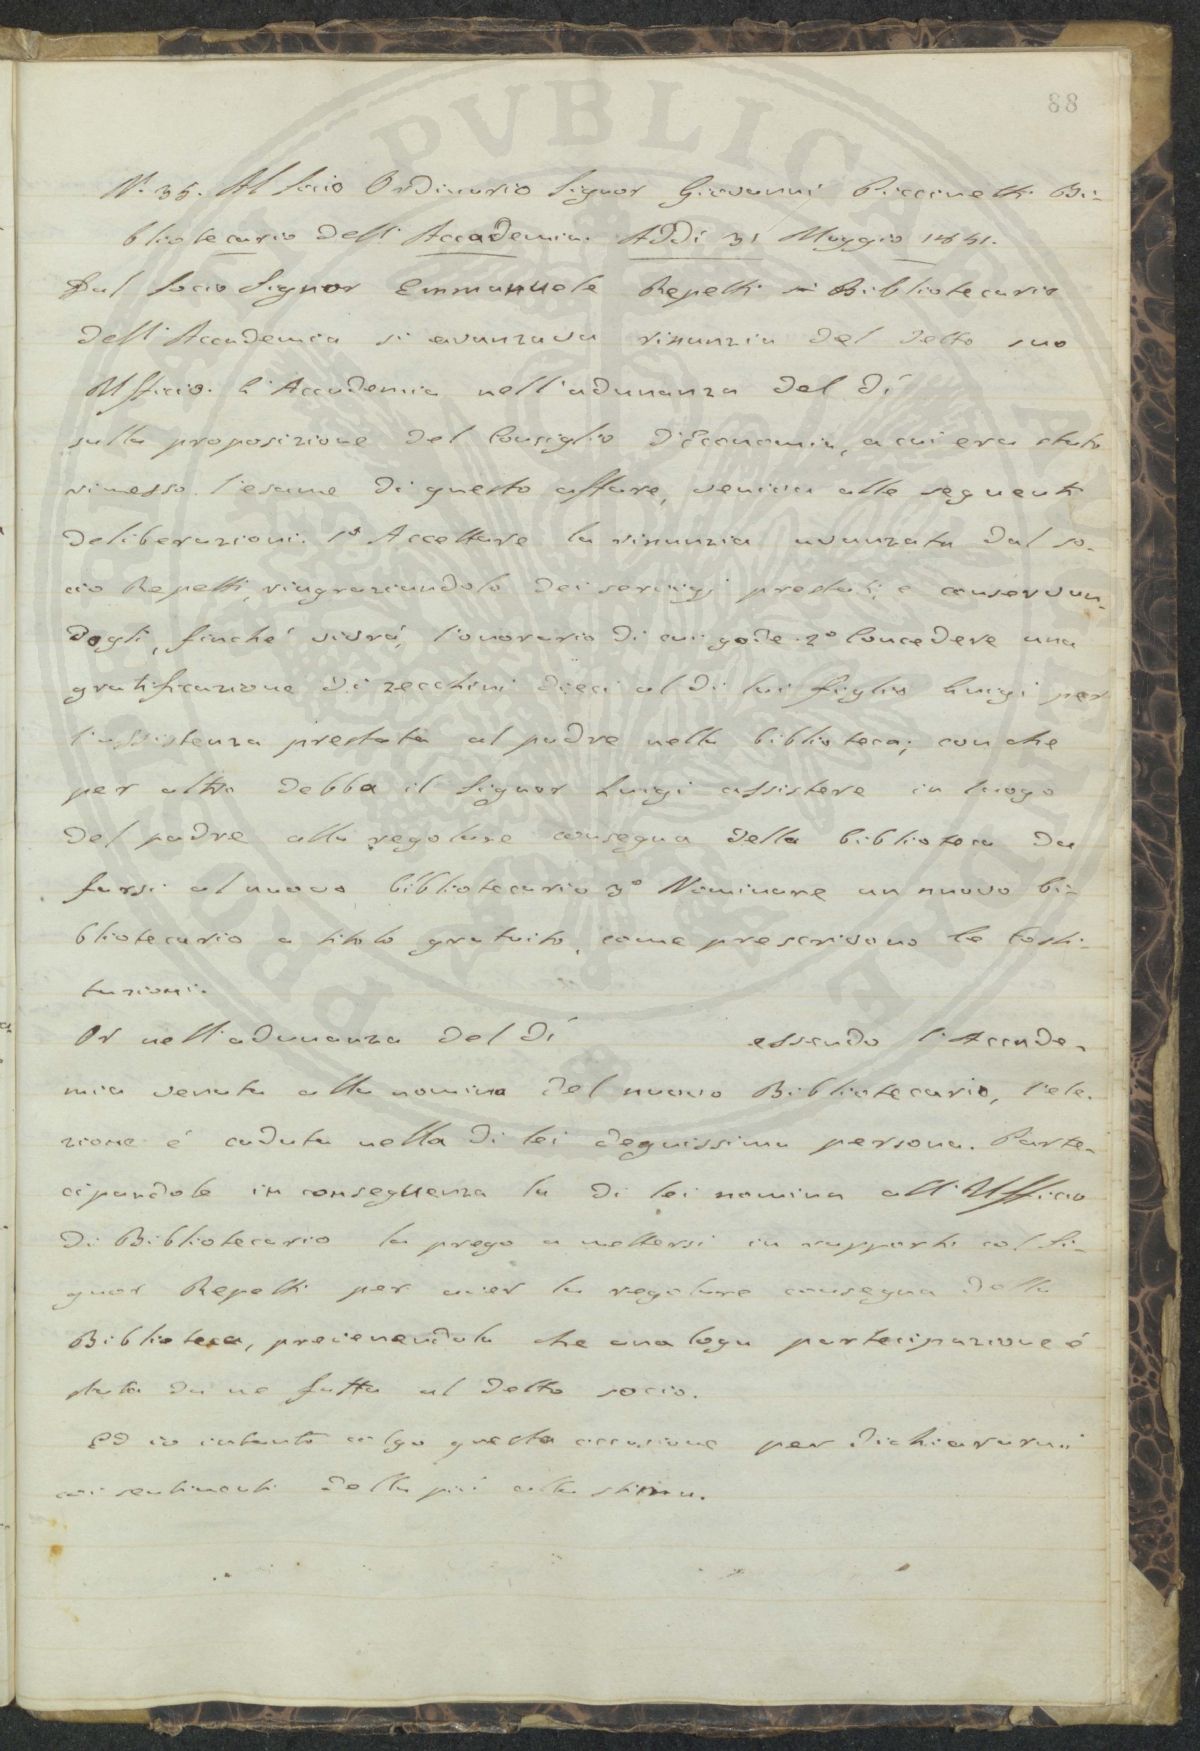 88
N. 35. Al Socio Ordinario Signor Giovanni Piccinetti Bi-
bliotecario dell'Accademia. Addì 31 Maggio 1841.
Dal Socio Signor Emmanuele Repetti Bibliotecario
dell'Accademia si avanzava rinunzia del detto suo
Ufficio. L'Accademia nell'adunanza del dì
sulla proposizione del Consiglio d'Economia, a cui era stato
rimesso l'esame di questo affare, veniva alle seguenti
deliberazioni. 1º Accettare la rinunzia avanzata dal so-
cio Repetti, ringraziandolo dei servigj prestati, e conservan-
dogli, finché vivrà, l'onorario di cui gode. 2º Concedere una
gratificazione di zecchini dieci al di lui figlio Luigi per
l'assistenza prestata al padre nella biblioteca; con che
per altro debba il Signor Luigi assistere in luogo
del padre alla regolare consegna della biblioteca da
farsi al nuovo bibliotecario 3º Nominare un nuovo bi-
bliotecario a titolo gratuito, come prescrivono le Costi-
tuzioni.
Or nell'adunanza del dì essendo l'Accade-
mia venuta alla nomina del nuovo Bibliotecario, l'ele-
zione é caduta nella di lei degnissima persona. Parte-
cipandole in conseguenza la di lei nomina all'Ufficio
di Bibliotecario la prego a mettersi in rapporti col Si-
gnor Repetti per aver la regolare consegna della
Biblioteca, prevenendola che analoga partecipazione é
stata da me fatta al detto socio.
Ed io intanto colgo questa occasione per dichiararmi
coi sentimenti della più alta stima.